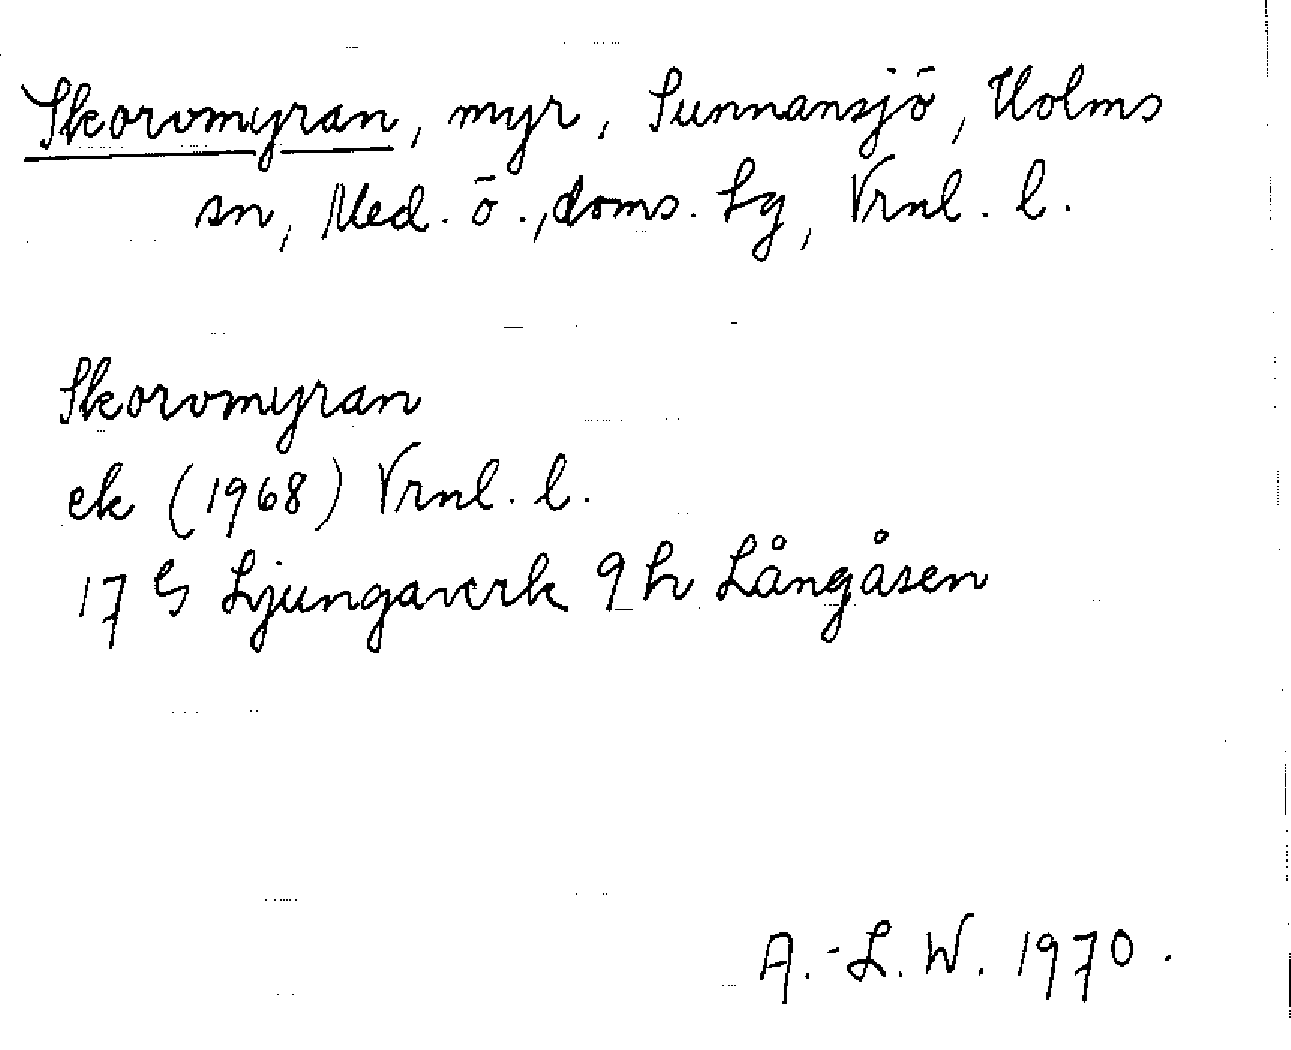 Skorvmyran, myr, Sunnansjö, Holms
sn, Med. ö., doms. Lg, Vrnl. l.
Skorvmyran
ek (1968) Vrnl. l.
17 G Ljungaverk 9 h Långåsen
A.-L. W. 1970.